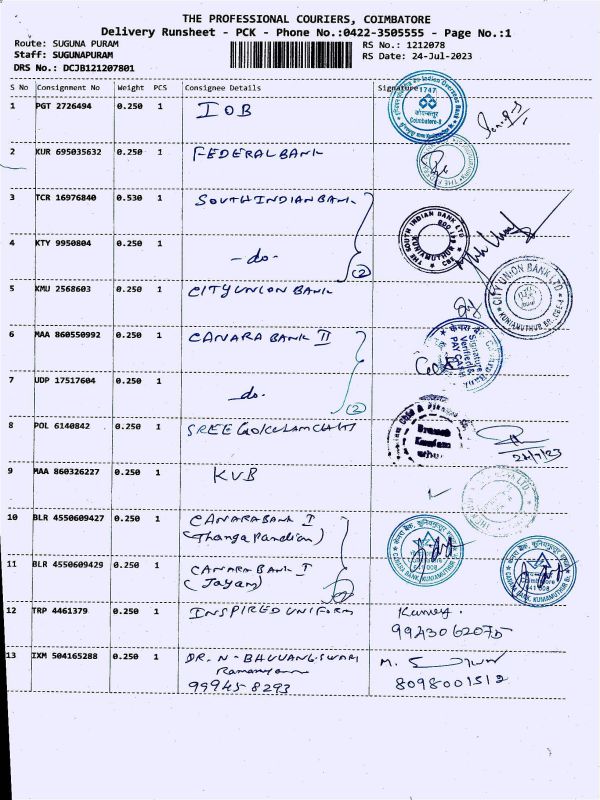 THE PROFESSIONAL COURIERS, COIMBATORE
Delivery Runsheet - PCK - Phone No.:0422-3505555 - Page No.:1
Route: SUGUNA PURAM RS No.: 1212078
Staff: SUGUNAPURAM RS Date: 24-Jul-2023
DRS No.: DCJB121207801
S No Consignment No Weight PCS Consignee Details Signature
1 PGT 2726494 0.250 1 IOB
2 KUR 695035632 0.250 1 FEDERAL BANK
3 TCR 16976840 0.530 1 SOUTH INDIAN BANK
THE SOUTH INDIAN BANK LTD KUNIAMUTHUR
4 KTY 9950804 0.250 1 -do- (2)
5 KMU 2568603 0.250 1 CITY UNION BANK
CITY UNION BANK LTD KUNIAMUTHUR BR. CBE-8
6 MAA 860550992 0.250 1 CANARA BANK II
7 UDP 17517604 0.250 1 -do- (2)
8 POL 6140842 0.250 1 SREE GOKULAM CHITS
24/7/23
9 MAA 860326227 0.250 1 KVB
10 BLR 4550609427 0.250 1 CANARA BANK I
(Thanga Pandian)
11 BLR 4550609429 0.250 1 CANARA BANK I
(Jayam)
CANARA BANK, KUNIAMUTHUR
12 TRP 4461379 0.250 1 INSPIRED UNIFORM
9943062075
13 IXM 504165288 0.250 1 DR. N. M.
999458293 8098001512